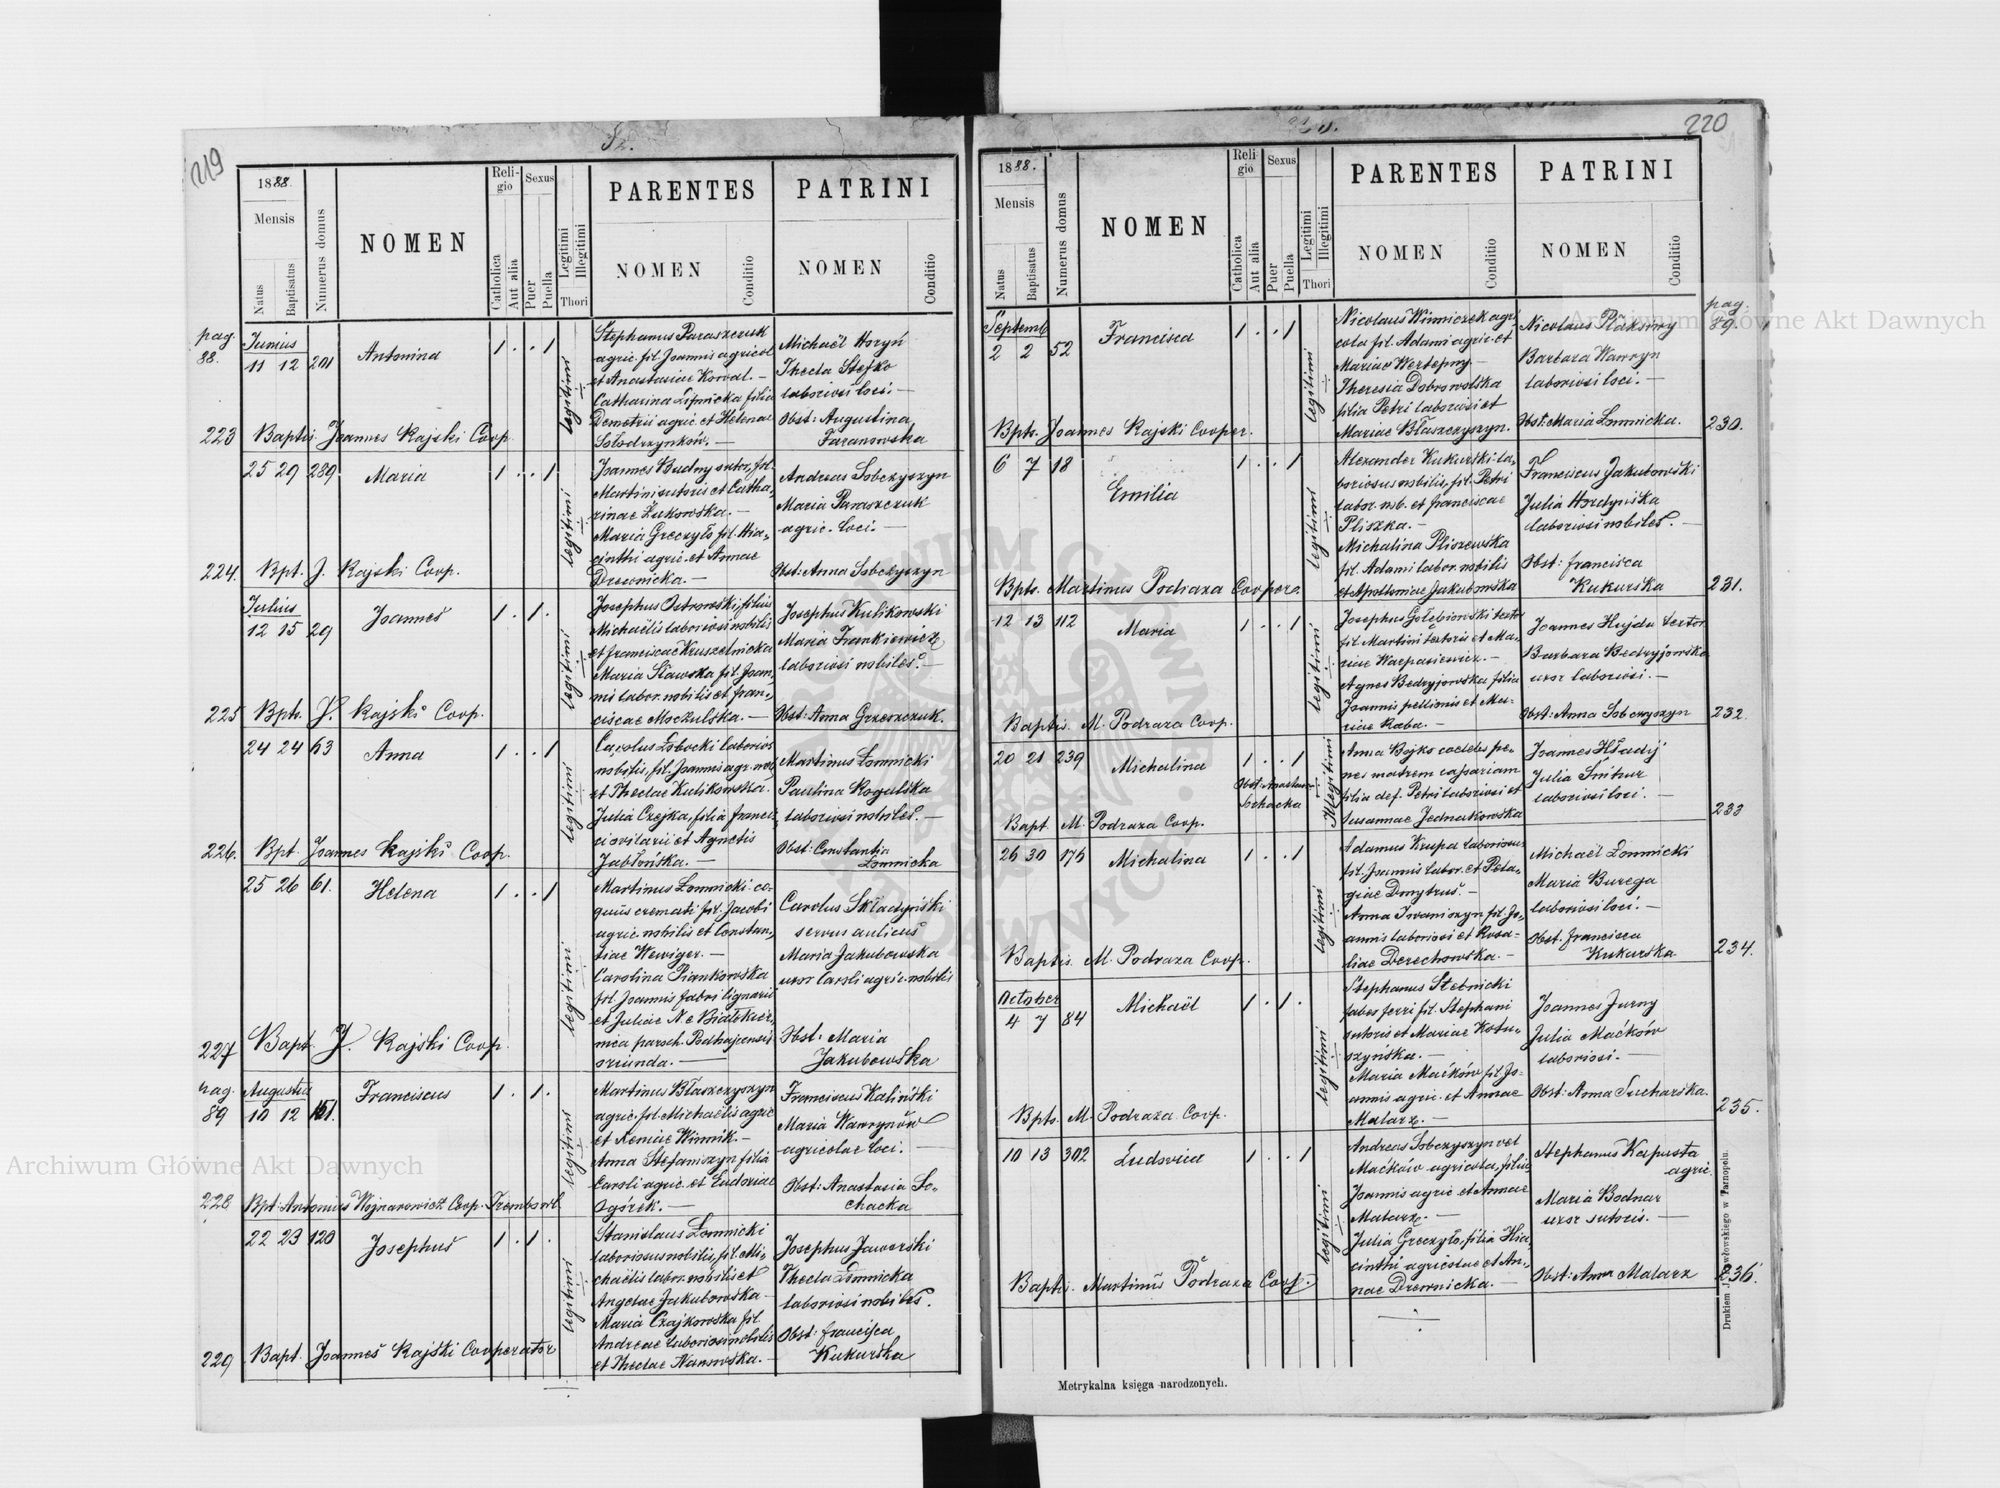 219
1888.
Mensis
Natus
Baptisatus
Numerus domus
NOMEN
Religio
Catholica
Aut alia
Sexus
Puer
Puella
Legitimi
Illegitimi
Thori
PARENTES
NOMEN
Conditio
PATRINI
NOMEN
Conditio
pag. 88.
Junius
11 12 201
Antonina
1 . . 1
legitimi
Stephanus Paraszczuk
agric. fil. Joannis agricol
et Anastasiae Kowal. —
Catharina Lipnicka filia
Demetrii agric. et Helenae
Solodrzynków. —
Michaël Horyń
Thecla Stefko
laboriosi loci. —
Obst: Augustina
Taranowska
223 Baptis. Joannes Rajski Coop.
25 29 289
Maria
1 . . 1
legitimi
Joannes Budny sutor, fil.
Martini sutoris et Catha-
rinae Żukowska. —
Maria Greczyło fil. Hia-
cinthi agric. et Annae
Drewnicka. —
Andreas Sobczyszyn
Maria Paraszczuk
agric. loci. —
Obst: Anna Sobczyszyn
224. Bpt. J. Rajski Coop.
Julius
12 15 29
Joannes
1 . 1 .
legitimi
Josephus Ostrowski, filius
Michaëlis laboriosi nobilis
et Franciscae Kruszelnicka
Maria Sławska fil. Joan-
nis labor. nobilis et Fran-
ciscae Moczulska. —
Josephus Kulikowski
Maria Frankiewicz
laboriosi nobiles. —
Obst: Anna Grzeszczuk.
225 Bpts. J. Rajski Coop.
24 24 63
Anna
1 . . 1
legitimi
Carolus Łobocki laborios
nobilis, fil. Joannis agr. nob.
et Theclae Kulikowska.
Julia Czejka, filia Franci-
ci ovilarii et Agnetis
Jabłońska. —
Martinus Łomnicki
Paulina Rogulska
laboriosi nobiles. —
Obst: Constantia
Łomnicka
226. Bpt. Joannes Rajski Coop.
25 26 61.
Helena
1 . . 1
legitimi
Martinus Łomnicki co-
quus cremati fil. Jacobi
agric. nobilis et Constan-
tiae Weviger. —
Carolina Piankowska
fil. Joannis fabri lignarii
et Juliae N. e
paroch. Podhajcensis
oriunda. —
Carolus Składyński
servus aulicus
Maria Jakubowska
uxor Caroli agric. nobilis
Obst: Maria
Jakubowska
227 Bapt. J. Rajski Coop.
pag. 89
Augustus
10 12 151.
Franciscus
1 . 1 .
legitimi
Martinus Błaszczyszyn
agric. fil. Michaëlis agric
et Xeniae Winnik. —
Anna Stefaniszyn filia
Caroli agric. et Eudoxiae
Ogórek. —
Franciscus Kaliński
Maria Wawrynów
agricolae loci. —
Obst: Anastasia So-
chacka
228 Bpt. Antonius Wojnarowicz Coop. Trembowl.
22 23 120
Josephus
1 . 1 .
legitimi
Stanislaus Łomnicki
laboriosus nobilis, fil. Mi-
chaëlis labor. nobilis et
Angelae Jakubowska —
Maria Czajkowska fil.
Andreae laboriosi nobilis
et Theclae Nanowska. —
Josephus Jaworski
Thecla Łomnicka
laboriosi nobiles.
Obst: Francisca
Kukurska
229 Bapt. Joannes Rajski Cooperator
220
1888.
Mensis
Natus
Baptisatus
Numerus domus
NOMEN
Religio
Catholica
Aut alia
Sexus
Puer
Puella
Legitimi
Illegitimi
Thori
PARENTES
NOMEN
Conditio
PATRINI
NOMEN
Conditio
pag. 89.
Septemb
2 2 52
Francisca
1 . . 1
legitimi
Nicolaus Winniczek agri-
cola fil. Adami agric. et
Mariae Wertepny —
Theresia Dobrowolska
filia Petri laboriosi et
Mariae Błaszczyszyn.
Nicolaus Płaksiwy
Barbara Wawryn
laboriosi loci. —
Obst: Maria Łomnicka.
Bpts. Joannes Rajski Cooper. 230.
6 7 18
Emilia
1 . . 1
legitimi
Alexander Kukurski la-
boriosus nobilis, fil. Petri
labor. nob. et Franciscae
Pliszka. —
Michalina Pliszewska
fil. Adami labor. nobilis
et Apolloniae Jakubowska
Franciscus Jakubowski
Julia Hordyńska
laboriosi nobiles. —
Obst: Francisca
Kukurska
Bpts. Martinus Podraza Cooper. 231.
12 13 112
Maria
1 . . 1
legitimi
Josephus Gołębiowski textor
fil. Martini textoris et Ma-
riae Karpasiewicz. —
Agnes Bedryjowska filia
Joannis pellionis et Ma-
riae Raba. —
Joannes Hujda textor
Barbara Bedryjowska
uxor laboriosi. —
Obst: Anna Sobczyszyn
Baptis. M. Podraza Coop. 232.
20 21 239
Michalina
1 . . 1
Illegitimi
Anna Bojko caelebs pe-
nes matrem casariam
filia def. Petri laboriosi et
Susannae Jednakowska
Joannes Hładij
Julia Smitiur
laboriosi loci. —
Obst: Anastasia
Sochacka
Bapt. M. Podraza Coop. 233
26 30 176
Michalina
1 . . 1
legitimi
Adamus Krupa laboriosus
fil. Joannis labor. et Pela-
giae Dmytruś. —
Anna Iwaniszyn fil. Jo-
annis laboriosi et Rosa-
liae Derechowska. —
Michaël Łomnicki
Maria Burega
laboriosi loci. —
Obst: Francisca
Kukurska
Baptis. M. Podraza Coop. 234.
October
4 7 84
Michaël
1 . 1 .
legitimi
Stephanus Stebnicki
faber ferri fil. Stephani
sutoris et Mariae Kotu-
szyńska. —
Maria Maćków fil. Jo-
annis agric. et Annae
Malarz. —
Joannes Jurny
Julia Maćków
laboriosi. —
Obst: Anna Sucharska.
Bpts. M. Podraza Coop. 235.
10 13 302
Ludovica
1 . . 1
legitimi
Andreas Sobczyszyn vel
Maćków agricola, filius
Joannis agric et Annae
Malarz. —
Julia Greczyło, filia Hia-
cinthi agricolae et An-
nae Drewnicka. —
Stephanus Kapusta
agric.
Maria Bodnar
uxor sutoris. —
Obst: Anna Malarz
Baptis. Martinus Podraza Coop. 236.
Metrykalna księga narodzonych.
Drukiem J. Pawłowskiego w Tarnopolu.
Archiwum Główne Akt Dawnych
Archiwum Główne Akt Dawnych
ARCHIWUM GŁÓWNE AKT DAWNYCH